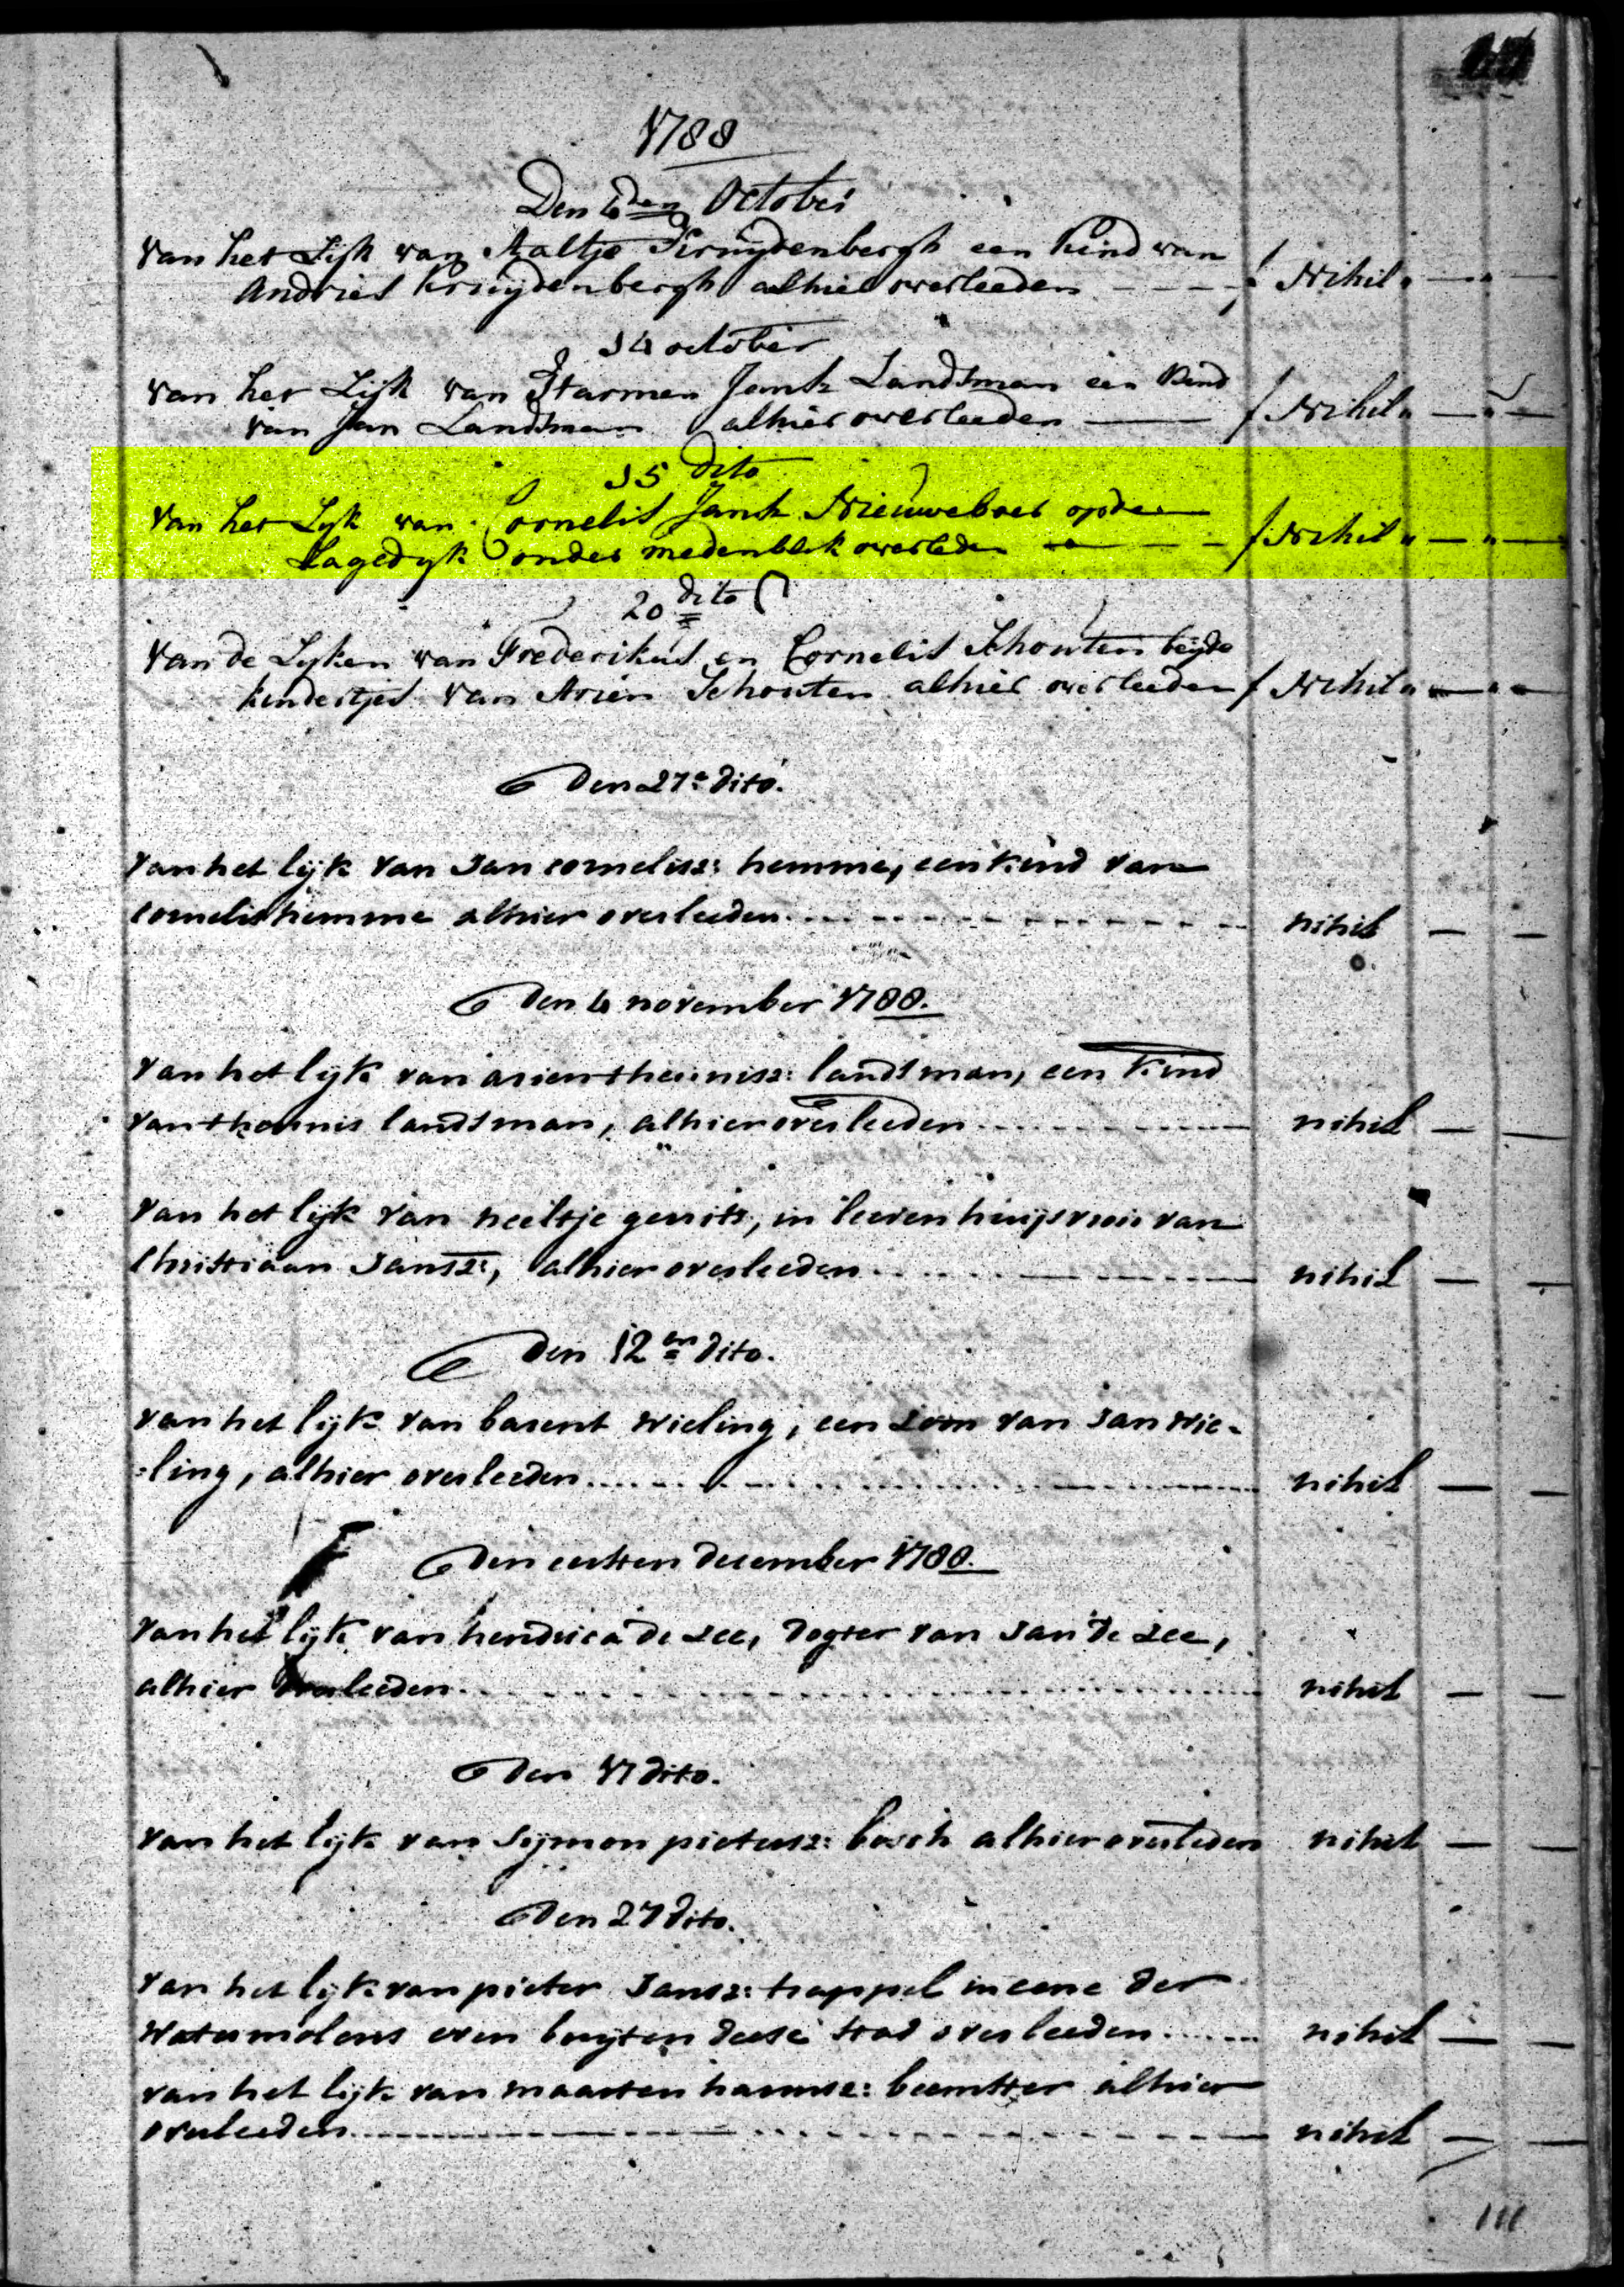 1788
Den 4den October
Van het Lijk van Aaltje Kruijdenbergh een kind van
Andries Kruijdenbergh alhier overleeden - - - - f Nihil " — " —
14 october
van het Lijk van Harmen Jansz Landsman een kind
van Jan Landsman alhier overleeden — f Nihil " — " —
15 dito
Van het Lyk van Cornelis Jansz Nieuweboer op den
Lagedyk onder medenblik overleden — - - f Nihil " — " —
20 dito
Van de Lyken van Frederikus en Cornelis Schouten beijde
kindertjes van Arien Schouten alhier overleeden f Nihil " — " —
Den 27e dito.
van het lijk van Jan cornelisz: hemme, een kind van
cornelis hemme alhier overleeden - - - - nihil — —
Den 4 november 1788.
van het lijk van arien theunisz: landsman, een kind
van theunis landsman, alhier overleeden - - - - nihil — —
van het lijk van neeltje gerrits, in leeven huijsvrou van
Christiaan Jansz:, alhier overleeden - - - - nihil — —
Den 12en dito.
van het lijk van barent wieling, een soon van Jan wie-
:ling, alhier overleeden - - - - nihil — —
Den eersten december 1788.
van het lijk van hendrica de zee, dogter van Jan de zee,
alhier overleeden - - - - nihil — —
Den 17 dito.
van het lijk van Sijmon pietersz: bosch alhier overleden nihil — —
Den 27 dito.
van het lijk van pieter Jansz: trappel in eene der
watermolens even buyten deese stad overleeden - - - nihil — —
van het lijk van maarten harmsz: beemster alhier
overleeden - - - - nihil — —
111